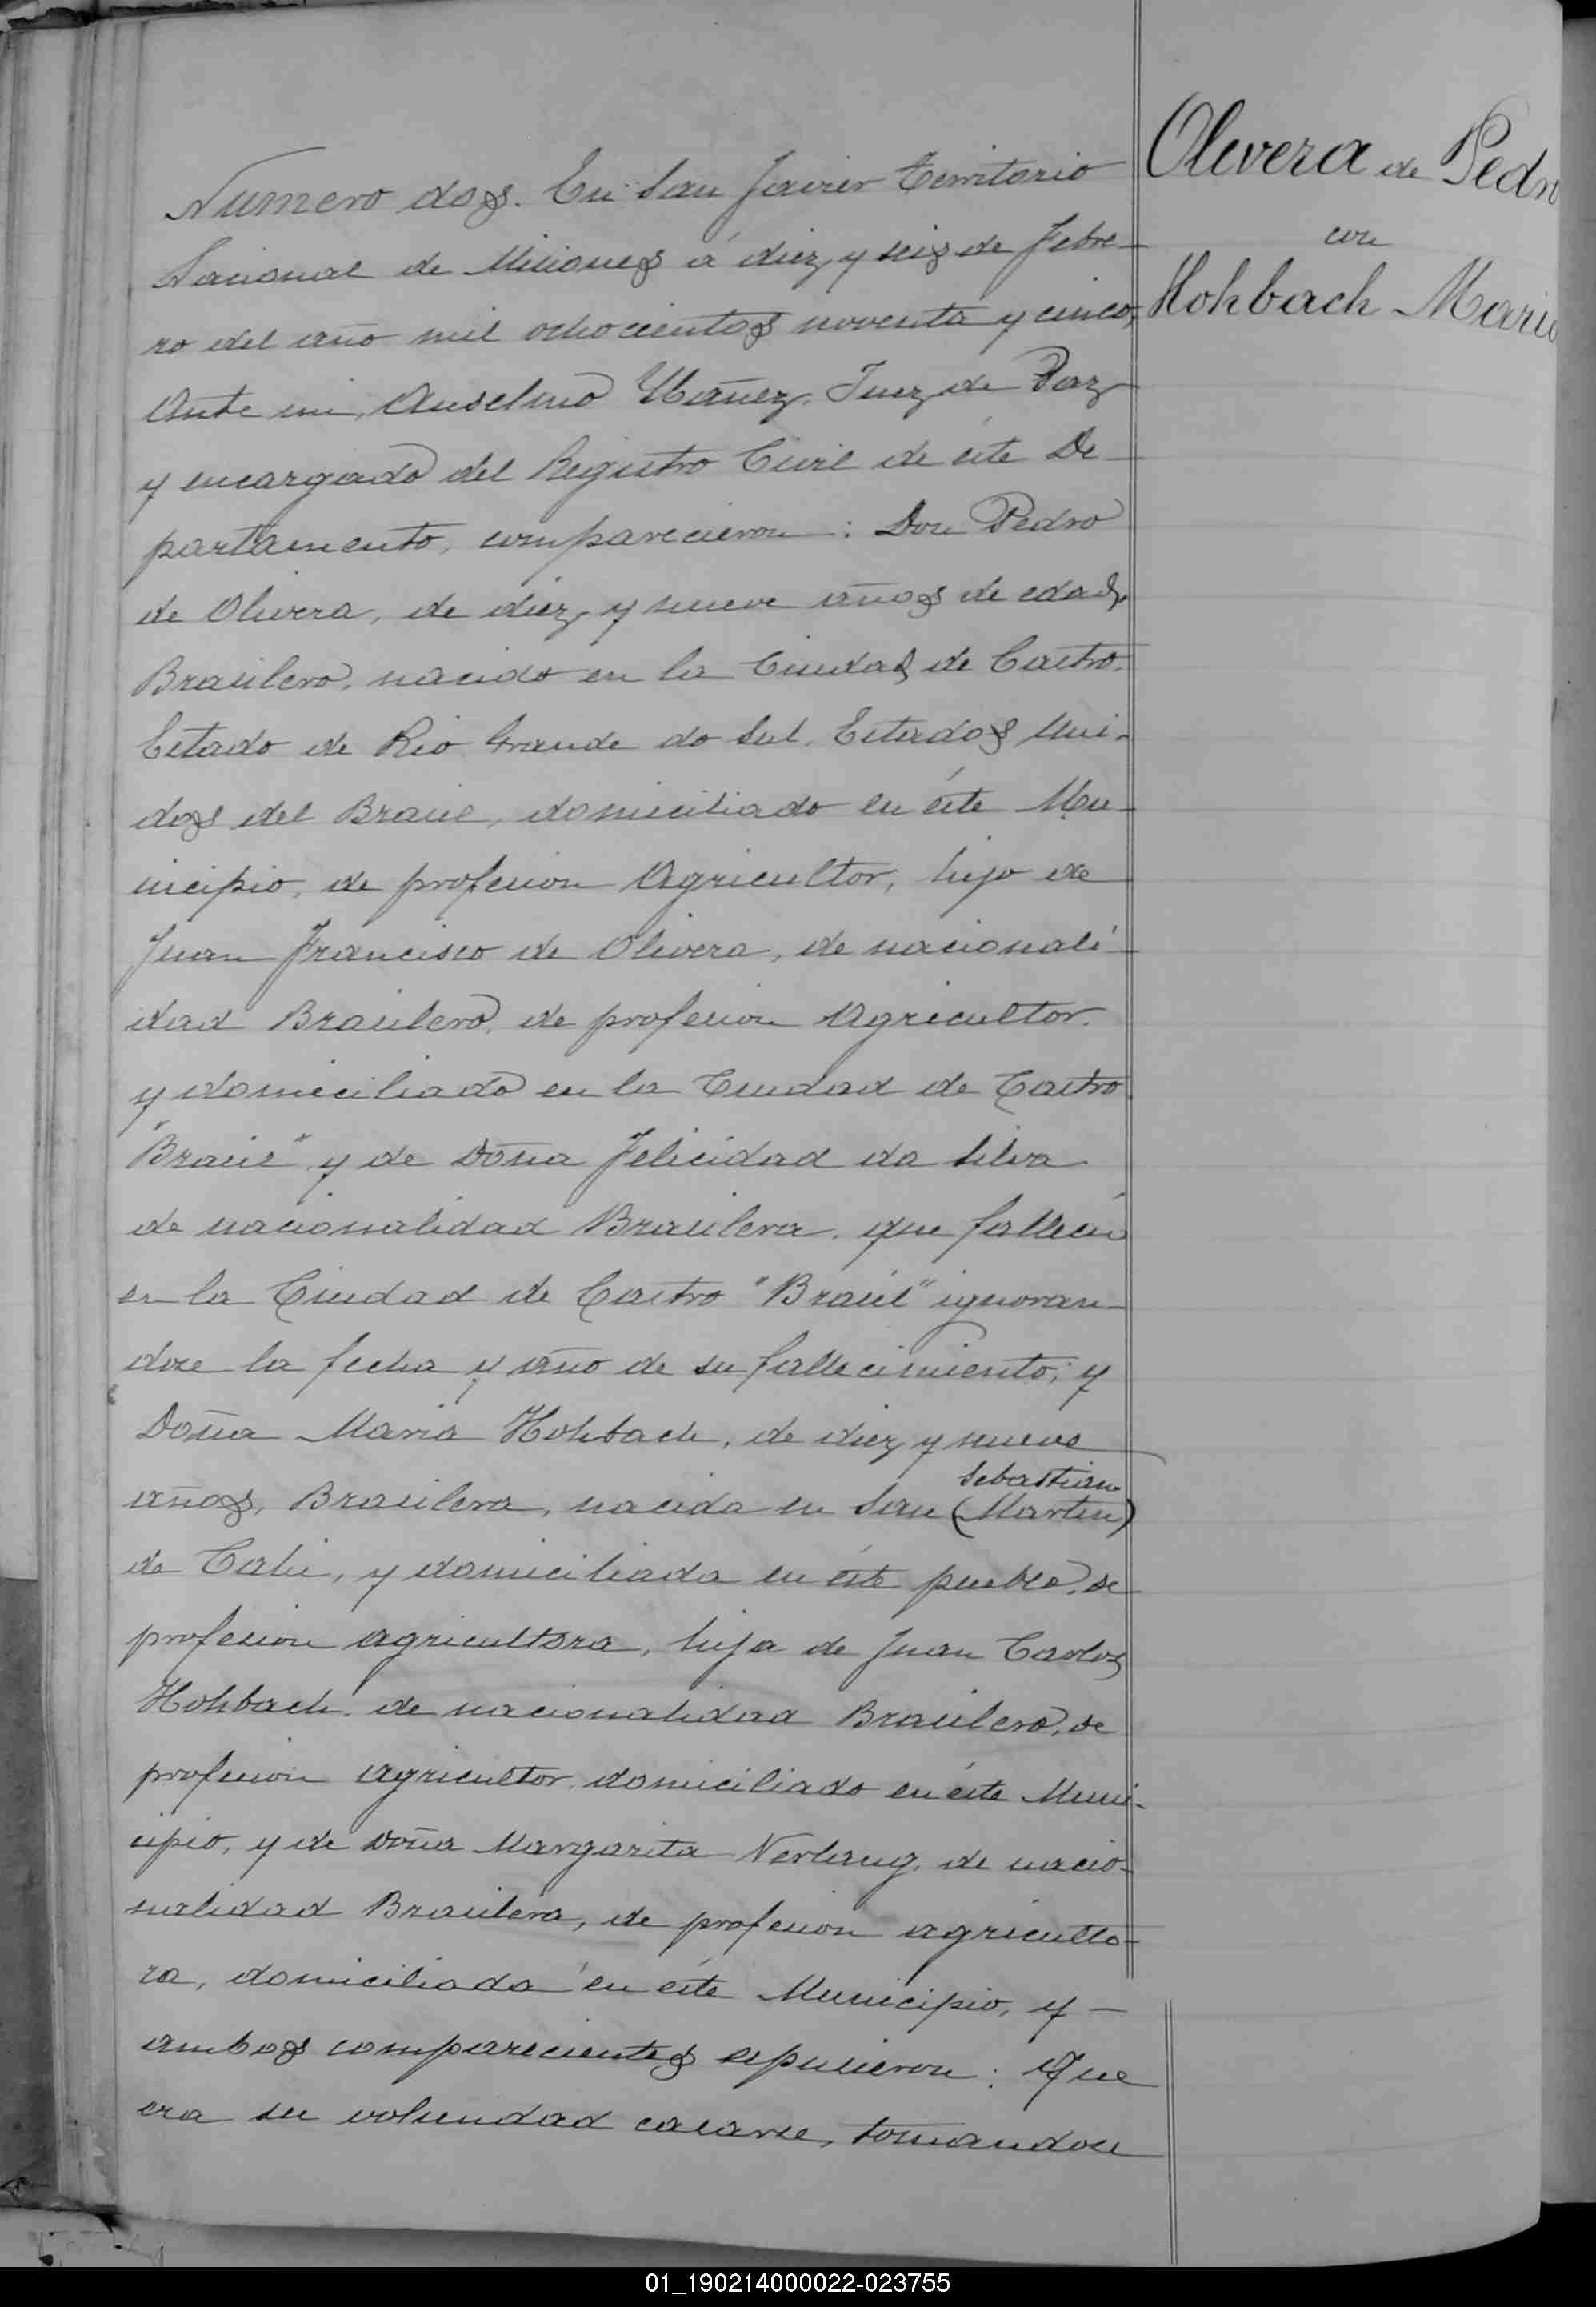 Olivera de Pedro
con
Hohbach Maria
Numero dos. En San Javier Territorio
Nacional de Misiones á diez y seis de Febre-
ro del año mil ochocientos noventa y cinco,
Ante mi, Anselmo Ybañez, Juez de Paz
y encargado del Registro Civil de éste De-
partamento, comparecieron: Don Pedro
de Olivera, de diez y nueve años de edad,
Brasilero, nacido en la Ciudad de Castro,
Estado de Rio Grande do Sul, Estados Uni-
dos del Brasil, domiciliado en éste Mu-
nicipio, de profesion Agricultor, hijo de
Juan Francisco de Olivera, de nacionali-
dad Brasilero, de profesion Agricultor,
y domiciliado en la Ciudad de Castro
"Brasil" y de Doña Felicidad da Silva
de nacionalidad Brasilera, que falleció
en la Ciudad de Castro "Brasil" ignoran-
dose la fecha y año de su fallecimiento; y
Doña Maria Hohbach, de diez y nueve
años, Brasilera, nacida en San (Martin)
Sebastian
de Cahi, y domiciliada en éste pueblo, de
profesion agricultora, hija de Juan Carlos
Hohbach, de nacionalidad Brasilero, de
profesion agricultor, domiciliado en éste Muni-
cipio, y de Doña Margarita de nacio-
nalidad Brasilera, de profesion agriculto-
ra, domiciliada en éste Municipio, y —
ambos comparecientes expusieron: Que
era su volundad casarse, tomandose
01_190214000022-023755